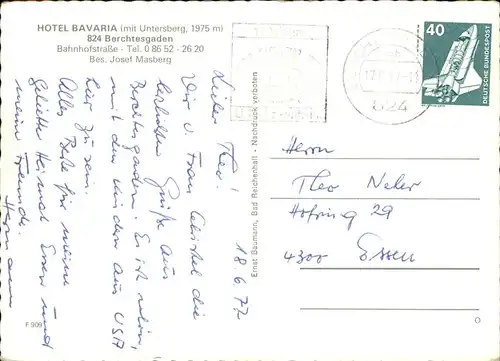 HOTEL BAVARIA (mit Untersberg, 1975 m)
824 Berchtesgaden
Bahnhofstraße - Tel. 0 86 52 - 26 20
Bes. Josef Masberg
18.6.77
Lieber Theo!
Wir u. Frau Christel die
herzlichsten Grüße aus
Berchtesgaden. Es ist schön,
mit den Kindern aus USA
hier zu sein.
Alles Gute für meine
geliebte Heimat Essen und
meine Freunde.
Hermann
F 909
Ernst Baumann, Bad Reichenhall - Nachdruck verboten
824
40
DEUTSCHE BUNDESPOST
Herrn
Theo
Hofring 29
4300 Essen